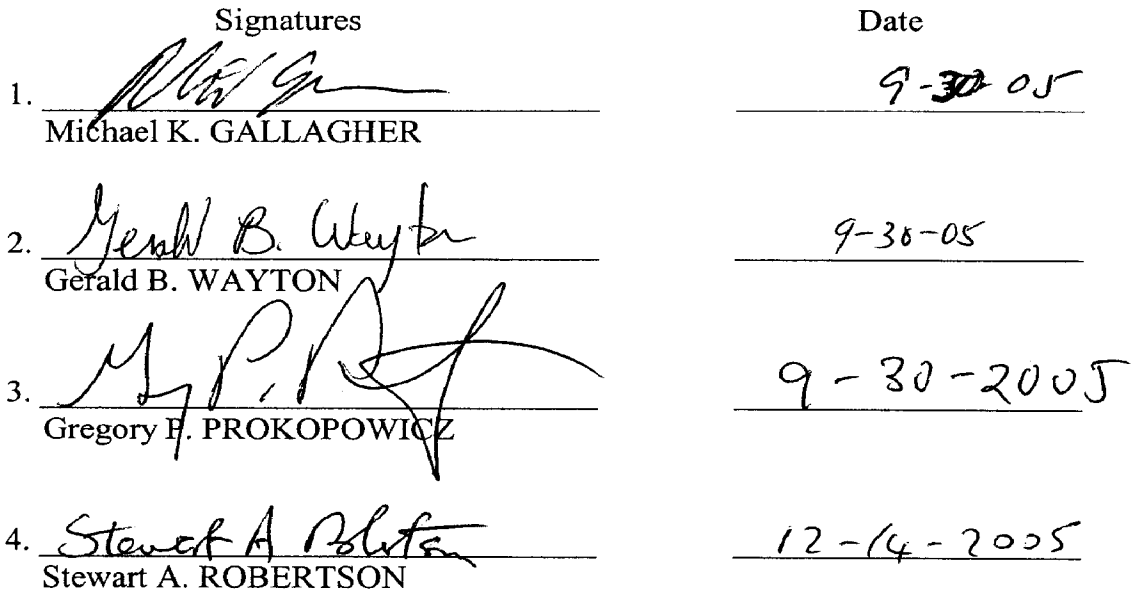 Signatures Date
1. 9-30-05
Michael K. GALLAGHER
2. Gerald B. Wayton 9-30-05
Gerald B. WAYTON
3. 9-30-2005
Gregory P. PROKOPOWICZ
4. Stewart A Robertson 12-14-2005
Stewart A. ROBERTSON